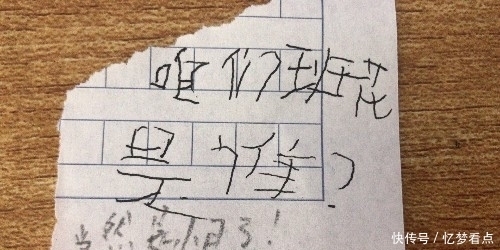 咱们班花
是谁?
当然是小日了!
快传号 / 忆梦看点